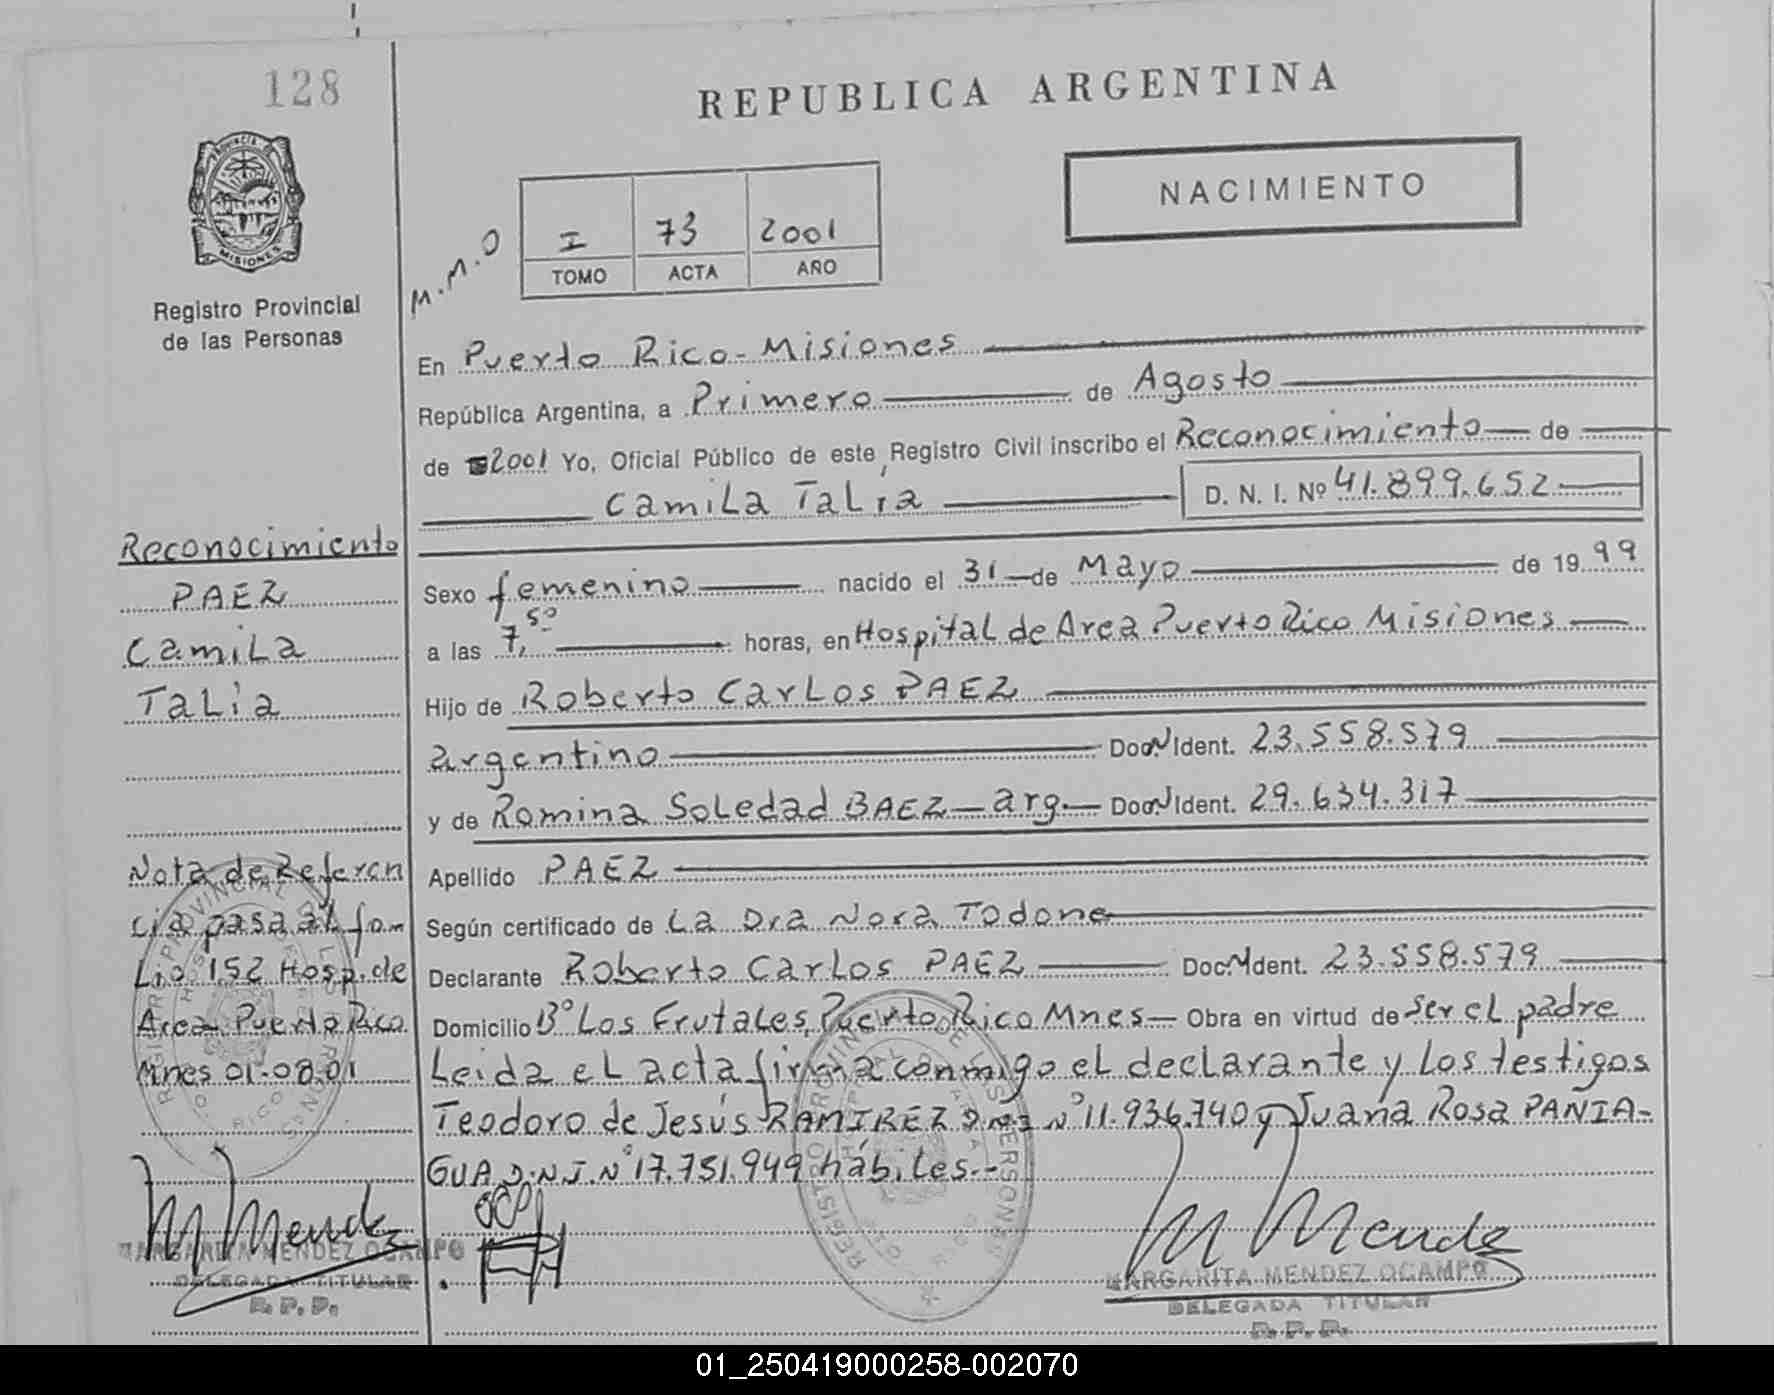 128
REPUBLICA ARGENTINA
NACIMIENTO
PROVINCIA DE
MISIONES
Registro Provincial
de las Personas
M.M.O
I 73 2001
TOMO ACTA AÑO
En Puerto Rico - Misiones
República Argentina, a Primero de Agosto
de 2001 Yo, Oficial Público de este Registro Civil inscribo el Reconocimiento de
Camila Talía D. N. I. Nº 41.899.652
Sexo femenino nacido el 31 de Mayo de 19 99
a las 7,50 horas, en Hospital de Area Puerto Rico Misiones
Hijo de Roberto Carlos PAEZ
argentino Doc. N Ident. 23.558.579
y de Romina Soledad BAEZ - arg. - Doc. N Ident. 29.634.317
Apellido PAEZ
Según certificado de La Dra Nora Todone
Declarante Roberto Carlos PAEZ Doc. N Ident. 23.558.579
Domicilio Bº Los Frutales, Puerto Rico Mnes - Obra en virtud de ser el padre
Leida el acta firma conmigo el declarante y los testigos
Teodoro de Jesús RAMIREZ D.N.I Nº 11.936.740 y Juana Rosa PANIA-
GUA D.N.I. Nº 17.751.949 hábiles.-
Reconocimiento
PAEZ
Camila
Talia
Nota de Referen
cia pasa al fo-
lio 152 Hosp. de
Area Puerto Rico
Mnes 01-08-01
M Mendez
MARGARITA MENDEZ OCAMPO
DELEGADA TITULAR
R. P. P.
M Mendez
MARGARITA MENDEZ OCAMPO
DELEGADA TITULAR
R. P. P.
REGISTRO PROVINCIAL DE LAS PERSONAS
REGISTRO PROVINCIAL DE LAS PERSONAS
01_250419000258-002070